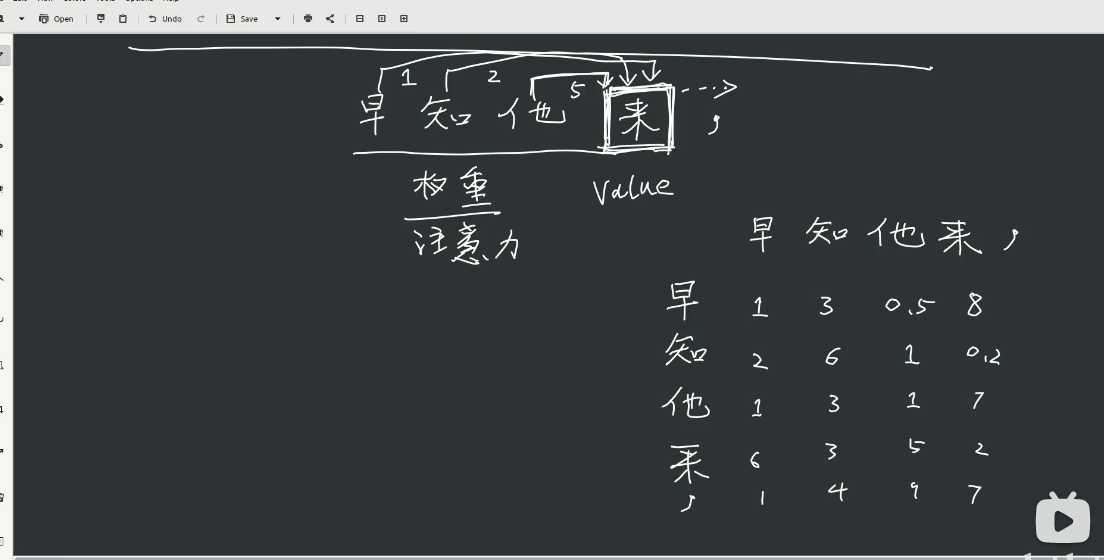 Open Undo Save
1 2 5
早 知 他 来 ,
权重 value
注意力
早 知 他 来 ,
早 1 3 0.5 8
知 2 6 1 0.2
他 1 3 1 7
来 6 3 5 2
, 1 4 9 7